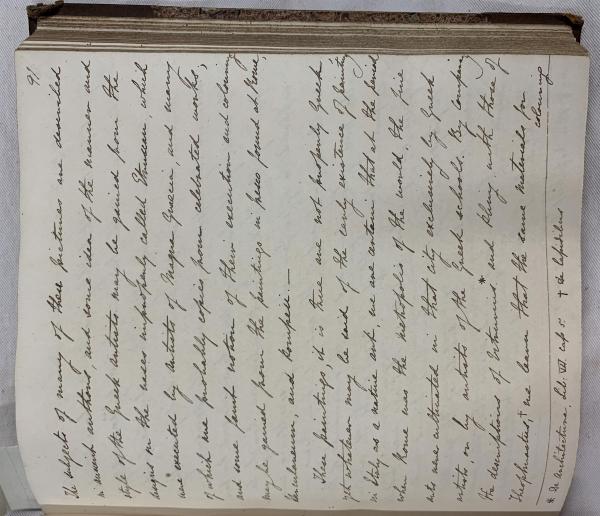 91
The subjects of many of these pictures are described
in ancient authors, and some idea of the manner and
style of the Greek artists may be gained from the
designs on the vases improperly called Etruscan, which
were executed by artists of Magna Graecia, and many
of which are probably copies from celebrated works;
and some faint notion of their execution and colouring
may be gained from the paintings in fresco found at Rome,
Herculaneum, and Pompeii. —
These paintings, it is true are not properly Greek
yet whatever may be said of the early existence of painting
in Italy as a native art, we are certain that at the period
when Rome was the metropolis of the world, the fine
arts were cultivated in that city exclusively by Greek
artists or by artists of the Greek schools. By comparing
the descriptions of Vitruvius * and Pliny with those of
Theophrastus,† we learn that the same materials for
colouring
* De Architectura. Lib. VII cap 5. † De Lapidibus